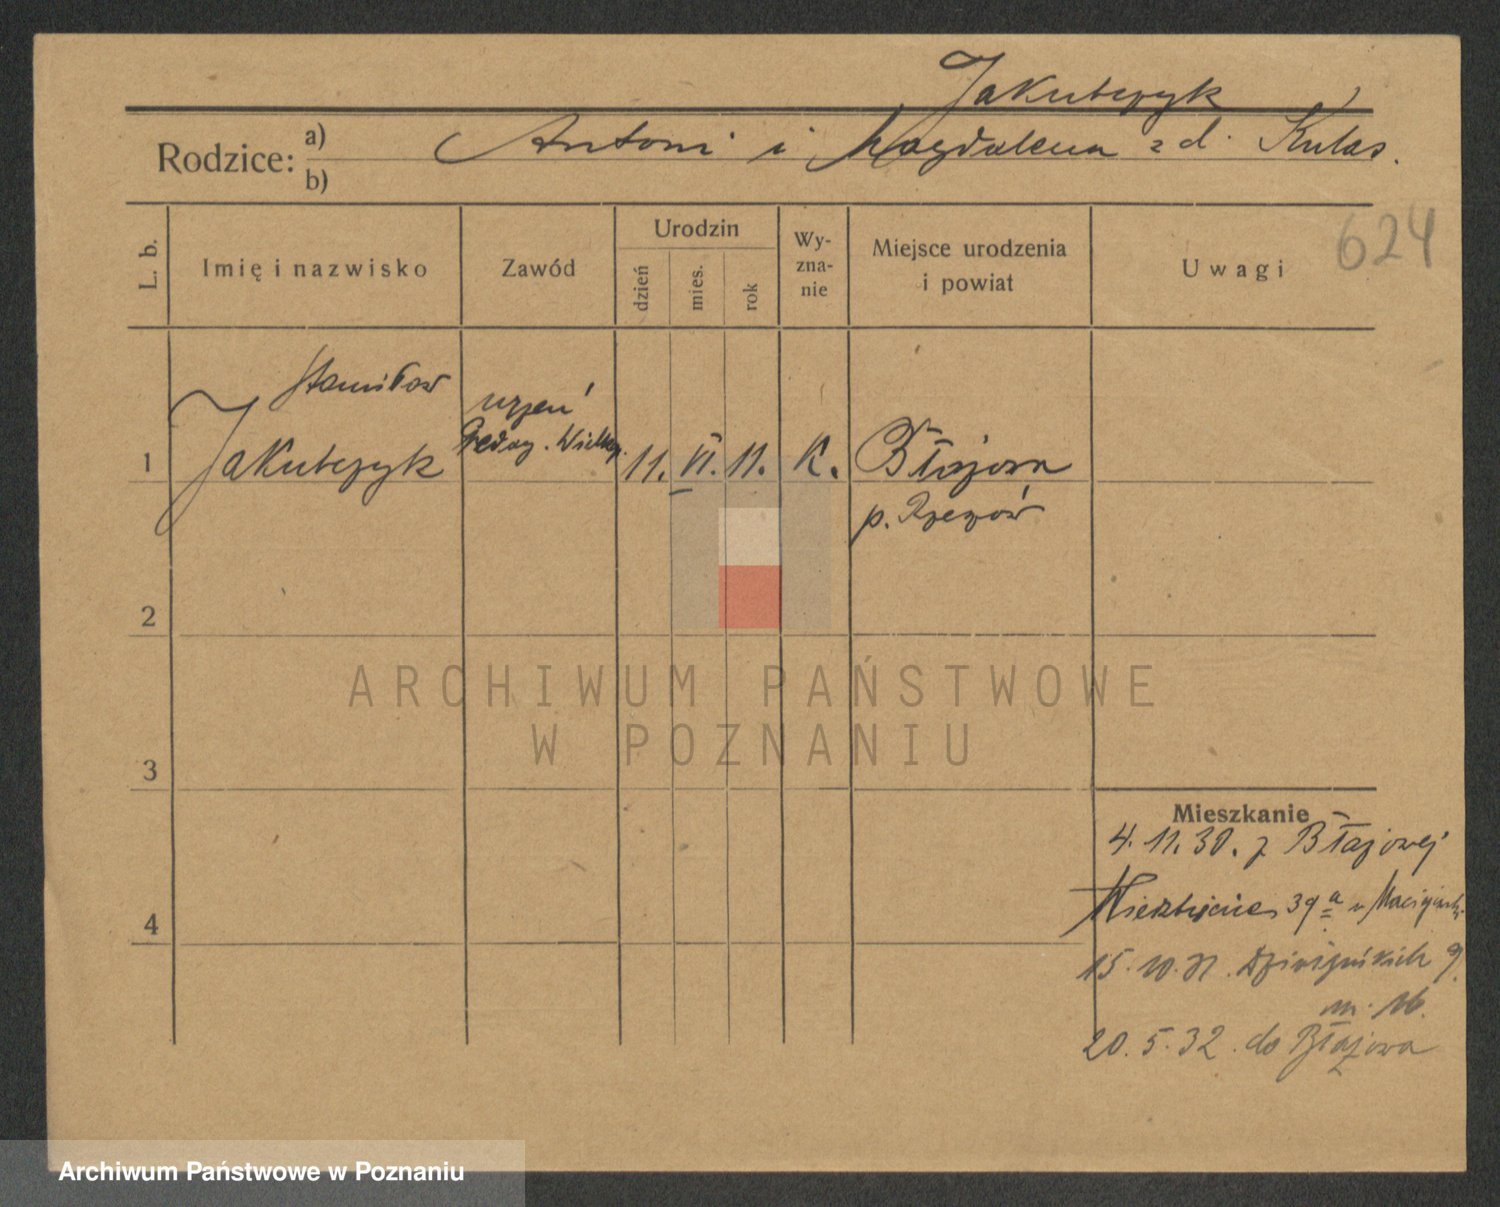 Jakubczyk
Rodzice: a) b) Antoni i Magdalena z d. Kulas.
624
L. b.
Imię i nazwisko
Zawód
Urodzin
dzień
mies.
rok
Wy-
zna-
nie
Miejsce urodzenia
i powiat
Uwagi
Stanisław
uczeń
1 Jakubczyk
11. VI. 11. K. Błażowa
p. Rzeszów
2
3
4
ARCHIWUM PAŃSTWOWE
W POZNANIU
Mieszkanie
4. 11. 30. z Błażowej
39 a u
15. 10. 31. 9
m. 16.
20. 5. 32. do Błażowa
Archiwum Państwowe w Poznaniu